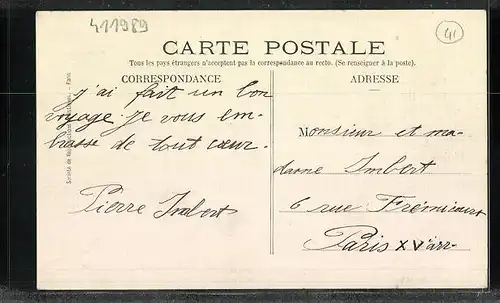 411989
41
CARTE POSTALE
Tous les pays étrangers n'acceptent pas la correspondance au recto. (Se renseigner à la poste).
CORRESPONDANCE
ADRESSE
j'ai fait un bon
voyage. Je vous em-
brasse de tout cœur.
Pierre Imbert
Monsieur et ma-
dame Imbert
6 rue Frémicourt
Paris XV arr
Société de - Paris.